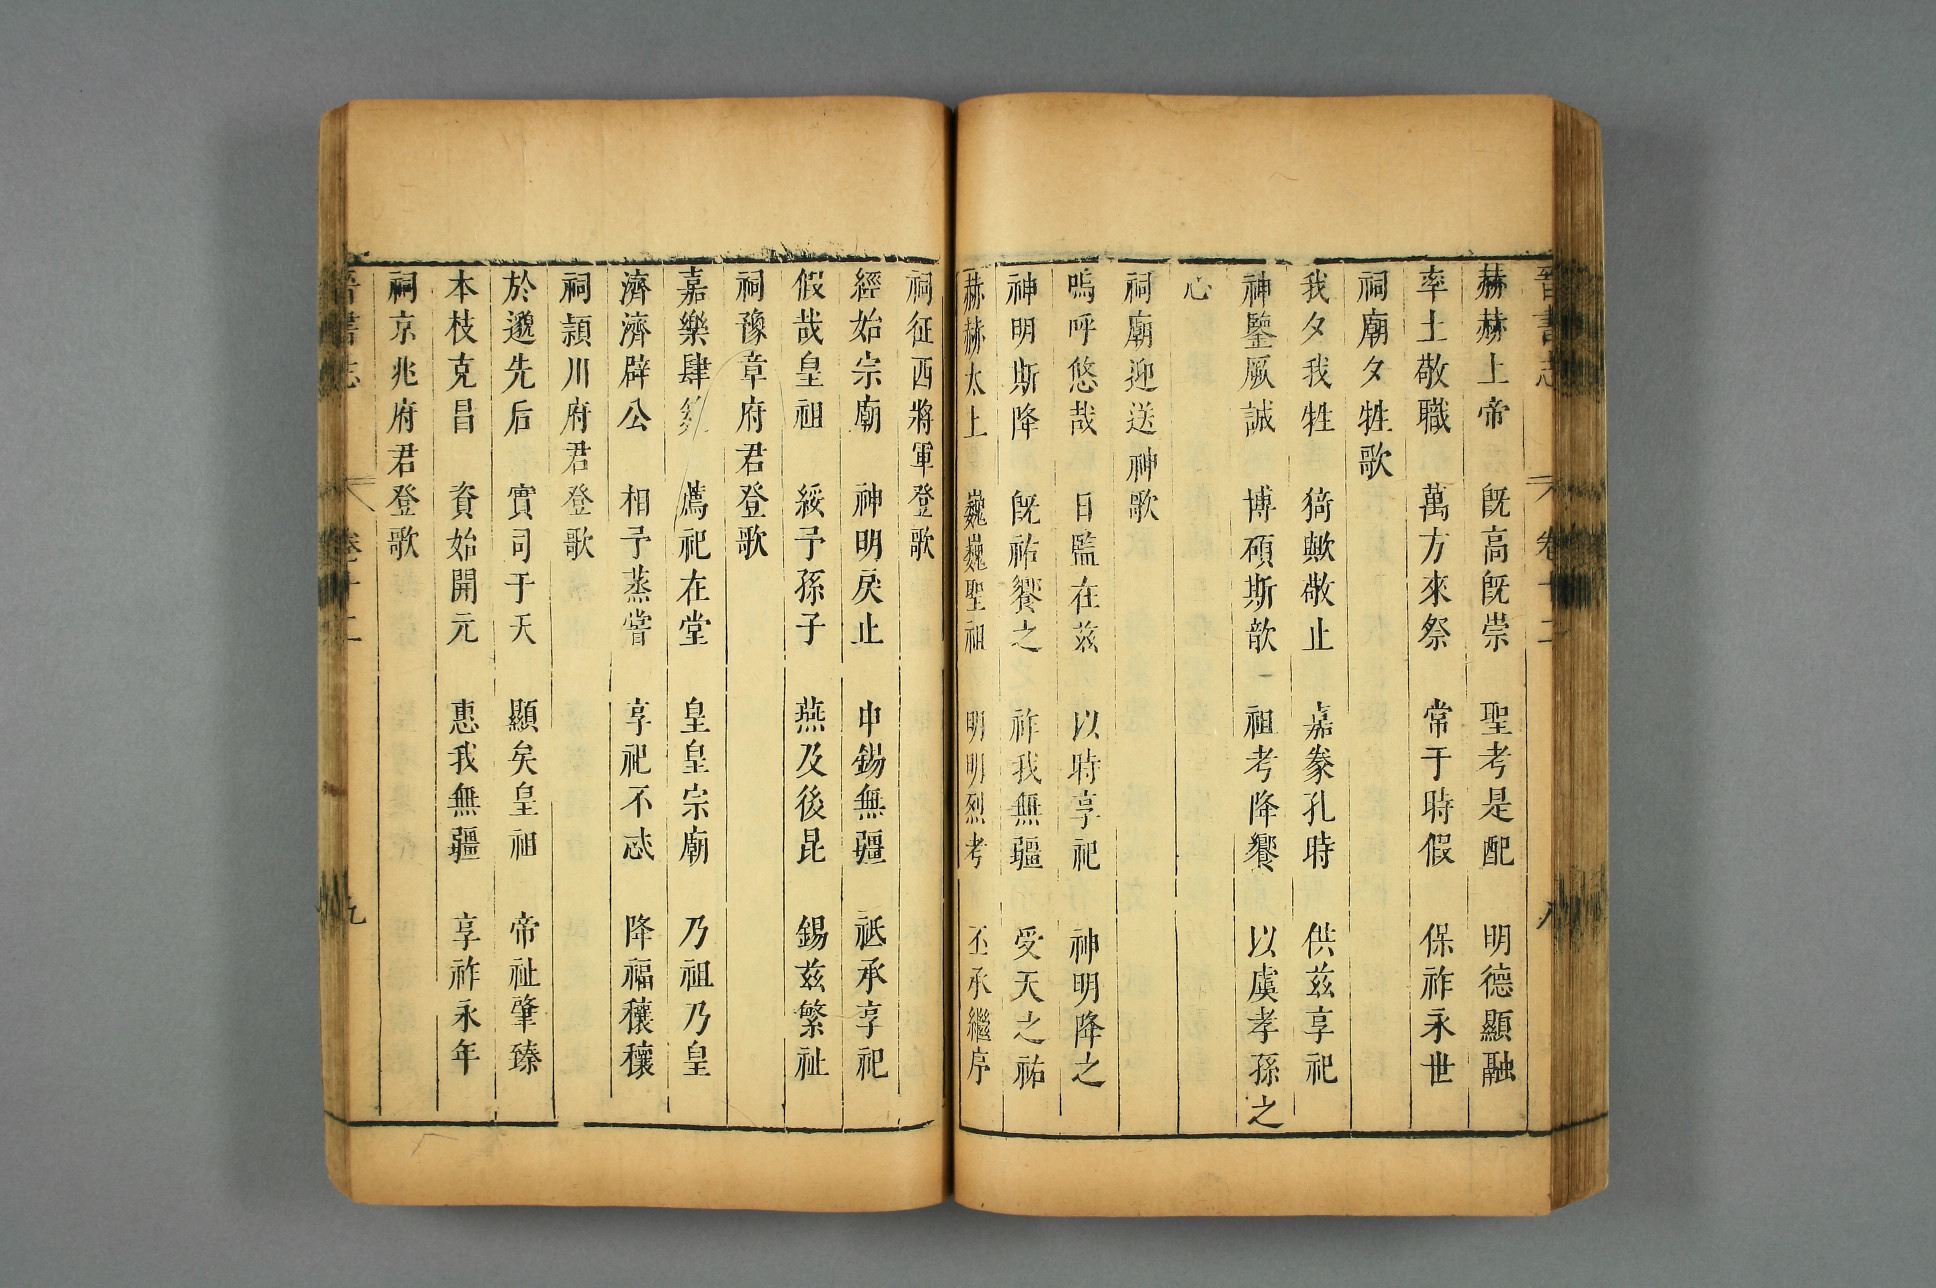 晉書志 卷十二 八
赫赫上帝 旣高旣崇 聖考是配 明德顯融
率土敬職 萬方來祭 常于時假 保祚永世
祠廟夕牲歌
我夕我牲 猗歟敬止 嘉豢孔時 供茲享祀
神鑒厥誠 博碩斯歆 祖考降饗 以虞孝孫之
心
祠廟迎送神歌
嗚呼悠哉 日監在茲 以時享祀 神明降之
神明斯降 旣祐饗之 祚我無疆 受天之祐
赫赫太上 巍巍聖祖 明明烈考 丕承繼序
祠征西將軍登歌
經始宗廟 神明戾止 申錫無疆 祗承享祀
假哉皇祖 綏予孫子 燕及後昆 錫茲繁祉
祠豫章府君登歌
嘉樂肆 薦祀在堂 皇皇宗廟 乃祖乃皇
濟濟辟公 相予蒸嘗 享祀不忒 降福穰穰
祠潁川府君登歌
於邈先后 實司于天 顯矣皇祖 帝祉肇臻
本枝克昌 資始開元 惠我無疆 享祚永年
祠京兆府君登歌
晉書志 卷十二 九